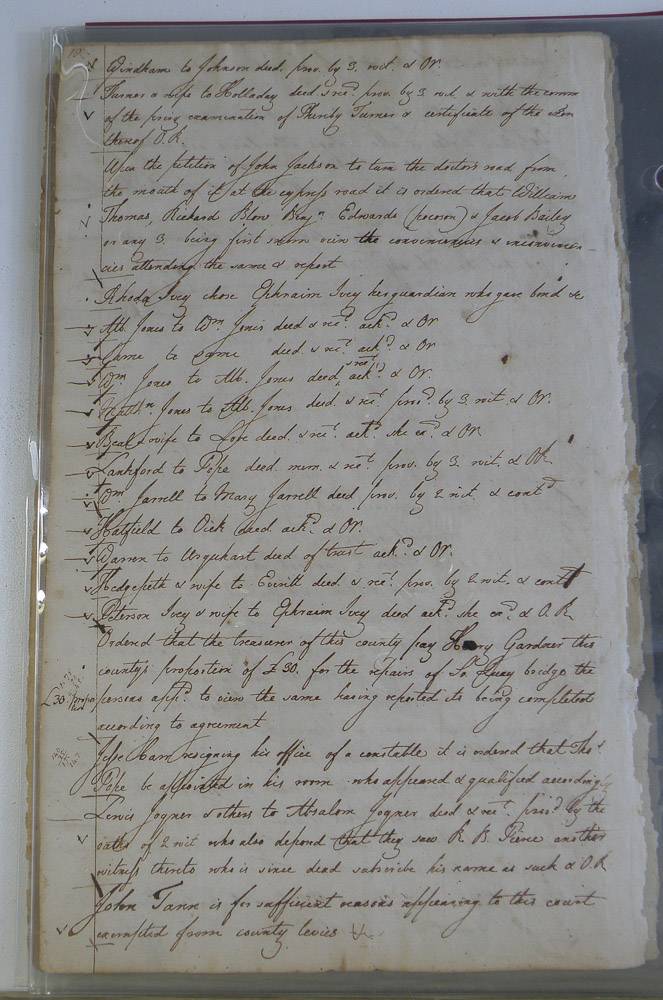 Windham to Johnson deed. prov. by 3. wit. & Or.
Turner & wife to Holladay deed & rect. prov. by 3 wit. & with the comm
of the privy examination of Pheriby Turner & certificate of the exon
thereof O. R.
Upon the petition of John Jackson to turn the doctors road from
the mouth of it at the cypress road it is ordered that William
Thomas, Richard Blow Benjn Edwards (pocoson) & Jacob Bailey
or any 3. being first sworn view the conveniencies & inconvenien
cies attending the same & report
Rhoda Ivey chose Ephraim Ivey her guardian who gave bond &c
Alb. Jones to Wm Jones deed & rect. ackd. & Or
Same to same deed. & rect. ackd. & Or
Wm Jones to Alb. Jones deed & rect. ackd. & Or.
Jones to Alb. Jones deed. & rect. provd. by 3. wit. & Or.
Beal & wife to Lope deed. & rect. ackd. she exd. & OR
Lankford to Pope deed. mem. & rect. prov. by 3 wit. & OR
Wm Jarrell to Mary Jarrell deed prov. by 2 wit. & contd
Hatfield to Dick deed ackd. & Or.
Warren to Urquhart deed of trust ackd. & Or.
Hedgepeth & wife to Everitt deed. & rect. prov. by 2 wit. & contd
Peterson Ivey & wife to Ephraim Ivey deed ackd. she exd. & O. R.
Ordered that the treasurer of this county pay Henry Gardner this
county's proportion of £30. for the repairs of So. Quay bridge the
£30
persons appd. to view the same having reported its being completed
according to agreement
Jesse resigning his office of a constable it is ordered that Thos
Pope be appointed in his room who appeared & qualified accordingly
Lewis Joyner & others to Absalom Joyner deed & rect. provd. by the
oaths of 2 wit who also depond that they saw R. B. Pierce another
witness thereto who is since dead subscribe his name as such & O. R
John Tann is for sufficient reasons appearing to this court
exempted from county levies